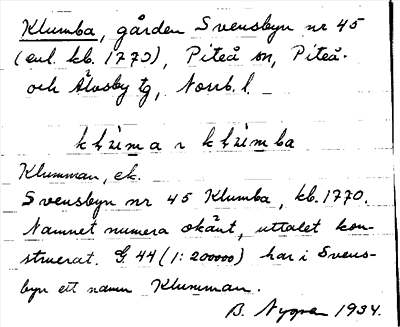 Klumba, gården Svensbyn nr 45
(enl. kb. 1770), Piteå sn, Piteå-
och Älvsby tg, Norrb. l.
Klumman, ek.
Svensbyn nr 45 Klumba, kb. 1770.
Namnet numera okänt, uttalet kon-
struerat. G. 44 (1:200000) har i Svens-
byn ett namn Klumman.
B. Nygren 1934.